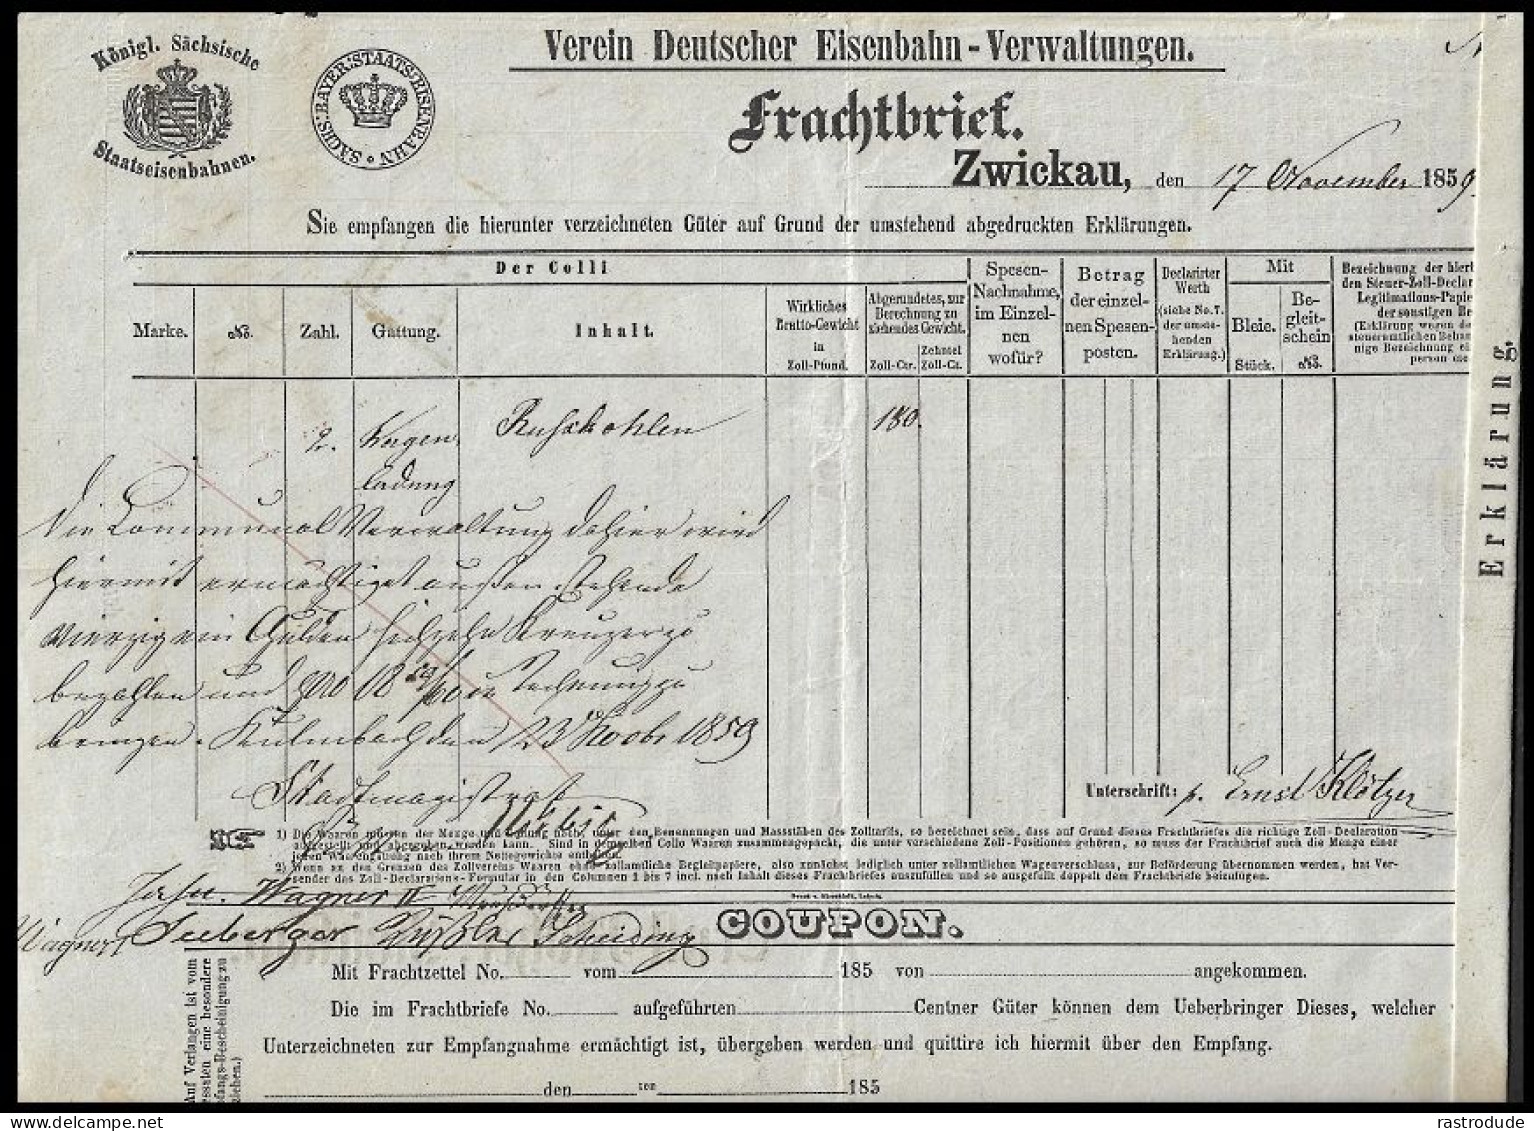 Königl. Sächsische
Staatseisenbahnen.
SÄCHS: BAYER: STAATS-EISENBAHN
Verein Deutscher Eisenbahn-Verwaltungen.
Frachtbrief.
Zwickau, den 17 November 1859
Sie empfangen die hierunter verzeichneten Güter auf Grund der umstehend abgedruckten Erklärungen.
Der Colli
Marke.
No.
Zahl.
Gattung.
Inhalt.
Wirkliches
Brutto-Gewicht
in
Zoll-Pfund.
Abgerundetes, zur
Berechnung zu
ziehendes Gewicht.
Zoll-Ctr.
Zehntel
Zoll-Ct.
Spesen-
Nachnahme,
im Einzel-
nen
wofür?
Betrag
der einzel-
nen Spesen-
posten.
Declarirter
Werth
(siehe No. 7.
der umste-
henden
Erklärung.)
Mit
Bleie.
Stück.
Be-
gleit-
schein
No.
Bezeichnung der hiert
den Steuer-Zoll-Declar
Legitimations-Papie
der sonstigen Be
(Erklärung wegen de
steueramtlichen Behan
nige Bezeichnung ei
person me
2. Wagen Rußkohlen 180.
ladung
Die Communal Verwaltung dahier wird
hiermit ermächtiget außen stehende
Vierzig ein Gulden sechzehn Kreuzer zu
bezahlen und pro 18 59/60 in Rechnung zu
bringen. Kulmbach den 23 Novbr 1859
Stadtmagistrat
Unterschrift: p. Ernst Klötzer
1) Die Waaren müssen der Menge und Gattung nach, unter den Benennungen und Massstäben des Zolltarifs, so bezeichnet sein, dass auf Grund dieses Frachtbriefes die richtige Zoll-Declaration
aufgestellt und abgegeben werden kann. Sind in demselben Collo Waaren zusammengepackt, die unter verschiedene Zoll-Positionen gehören, so muss der Frachtbrief auch die Menge einer
jeden Waarengattung nach ihrem Nettogewichte enthalten.
2) Wenn an den Grenzen des Zollvereins Waaren ohne zollamtliche Begleitpapiere, also zunächst lediglich unter zollamtlichen Wagenverschluss, zur Beförderung übernommen werden, hat Ver-
sender das Zoll-Declarations-Formular in den Columnen 1 bis 7 incl. nach Inhalt dieses Frachtbriefes auszufüllen und so ausgefüllt doppelt dem Frachtbriefe beizufügen.
Wagner IV
Wagner Seeberger Scheiding
COUPON.
Mit Frachtzettel No. vom 185 von angekommen.
Die im Frachtbriefe No. aufgeführten Centner Güter können dem Ueberbringer Dieses, welcher
Unterzeichneten zur Empfangnahme ermächtigt ist, übergeben werden und quittire ich hiermit über den Empfang.
den ten 185
Auf Verlangen ist vom
essaten eine besondere
fangs-Bescheinigung zu
ziehen.)
Erklärung.
rastrodude